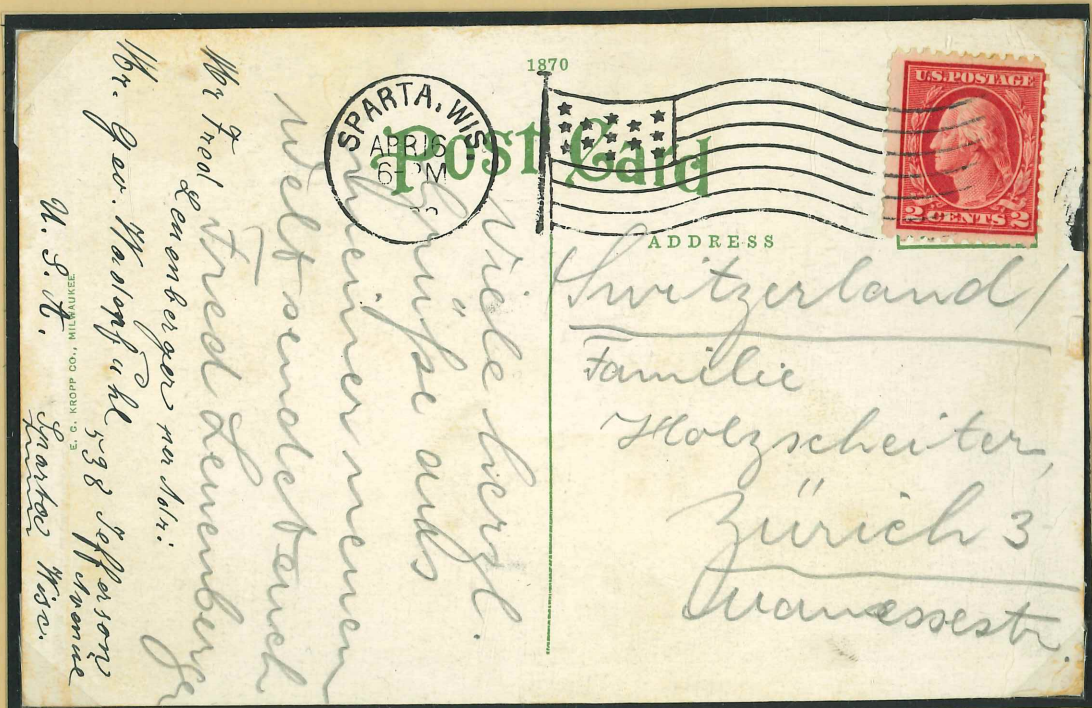 1870
Post Card
ADDRESS
SPARTA, WIS.
APR 16
6-PM
U.S. POSTAGE
2 CENTS 2
Switzerland/
Familie
Holzscheiter,
Zürich 3
Manessestr.
Viele herzl.
Grüße aus
meiner neuen
Welt sendet Euch
Fred Leuenberger
Mr Fred
Leuenberger
Mr. Geo.
538 Jefferson
Avenue
Sparta Wisc.
U. S. A.
E. C. KROPP CO., MILWAUKEE